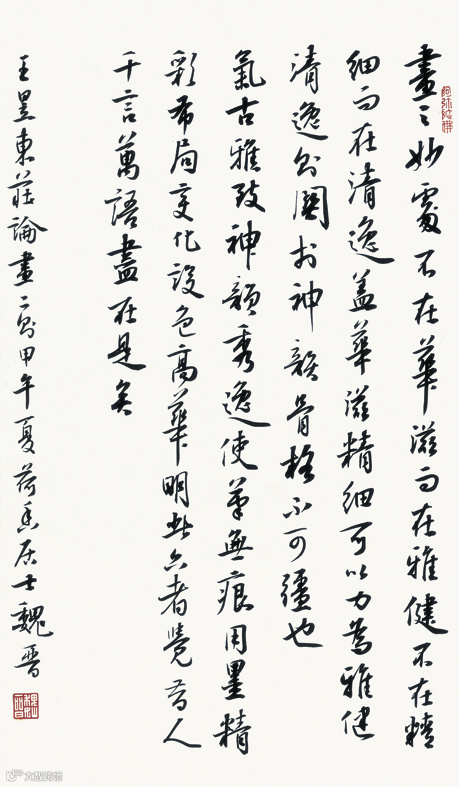 畫之妙處不在華滋而在雅健不在精
细而在清逸盖華滋精细可以力為雅健
清逸則關於神韻骨格不可疆也
氣古雅致神韻秀逸使筆無痕用墨精
彩布局变化设色高華明此六者覺昔人
千言萬語盡在是矣
王昱東莊論畫二則甲午夏荷香居士魏晋